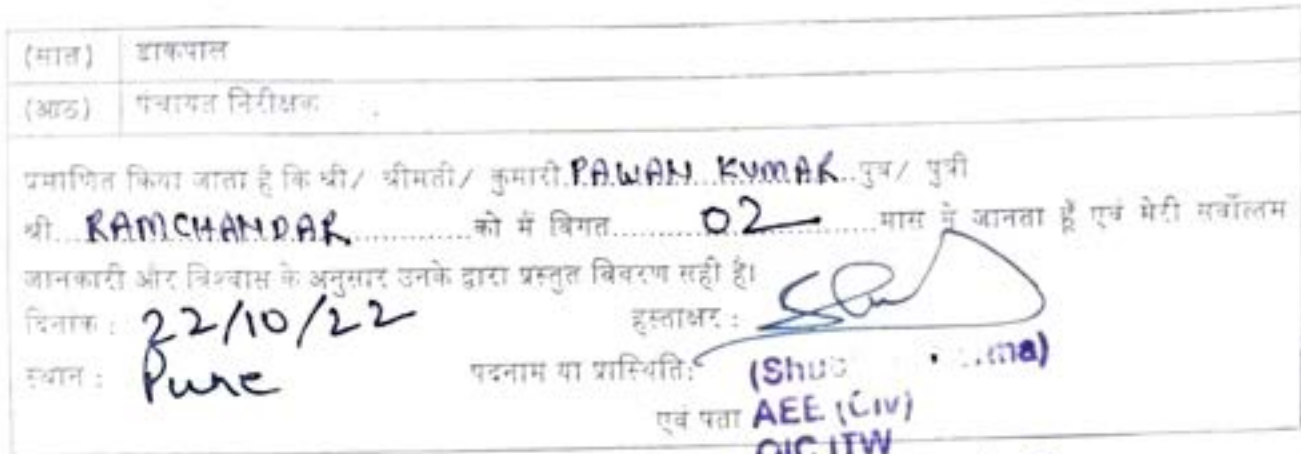 (सात) डाकपाल
(आठ) पंचायत निरीक्षक
प्रमाणित किया जाता है कि श्री/ श्रीमती/ कुमारी PAWAN KUMAR पुत्र/ पुत्री
श्री RAMCHANDAR को मैं विगत 02 मास से जानता हूँ एवं मेरी सर्वोत्तम
जानकारी और विश्वास के अनुसार उनके द्वारा प्रस्तुत विवरण सही है।
दिनांक : 22/10/22 हस्ताक्षर :
स्थान : Pune पदनाम या प्रास्थिति:
एवं पता AEE (Civ)
OIC ITW